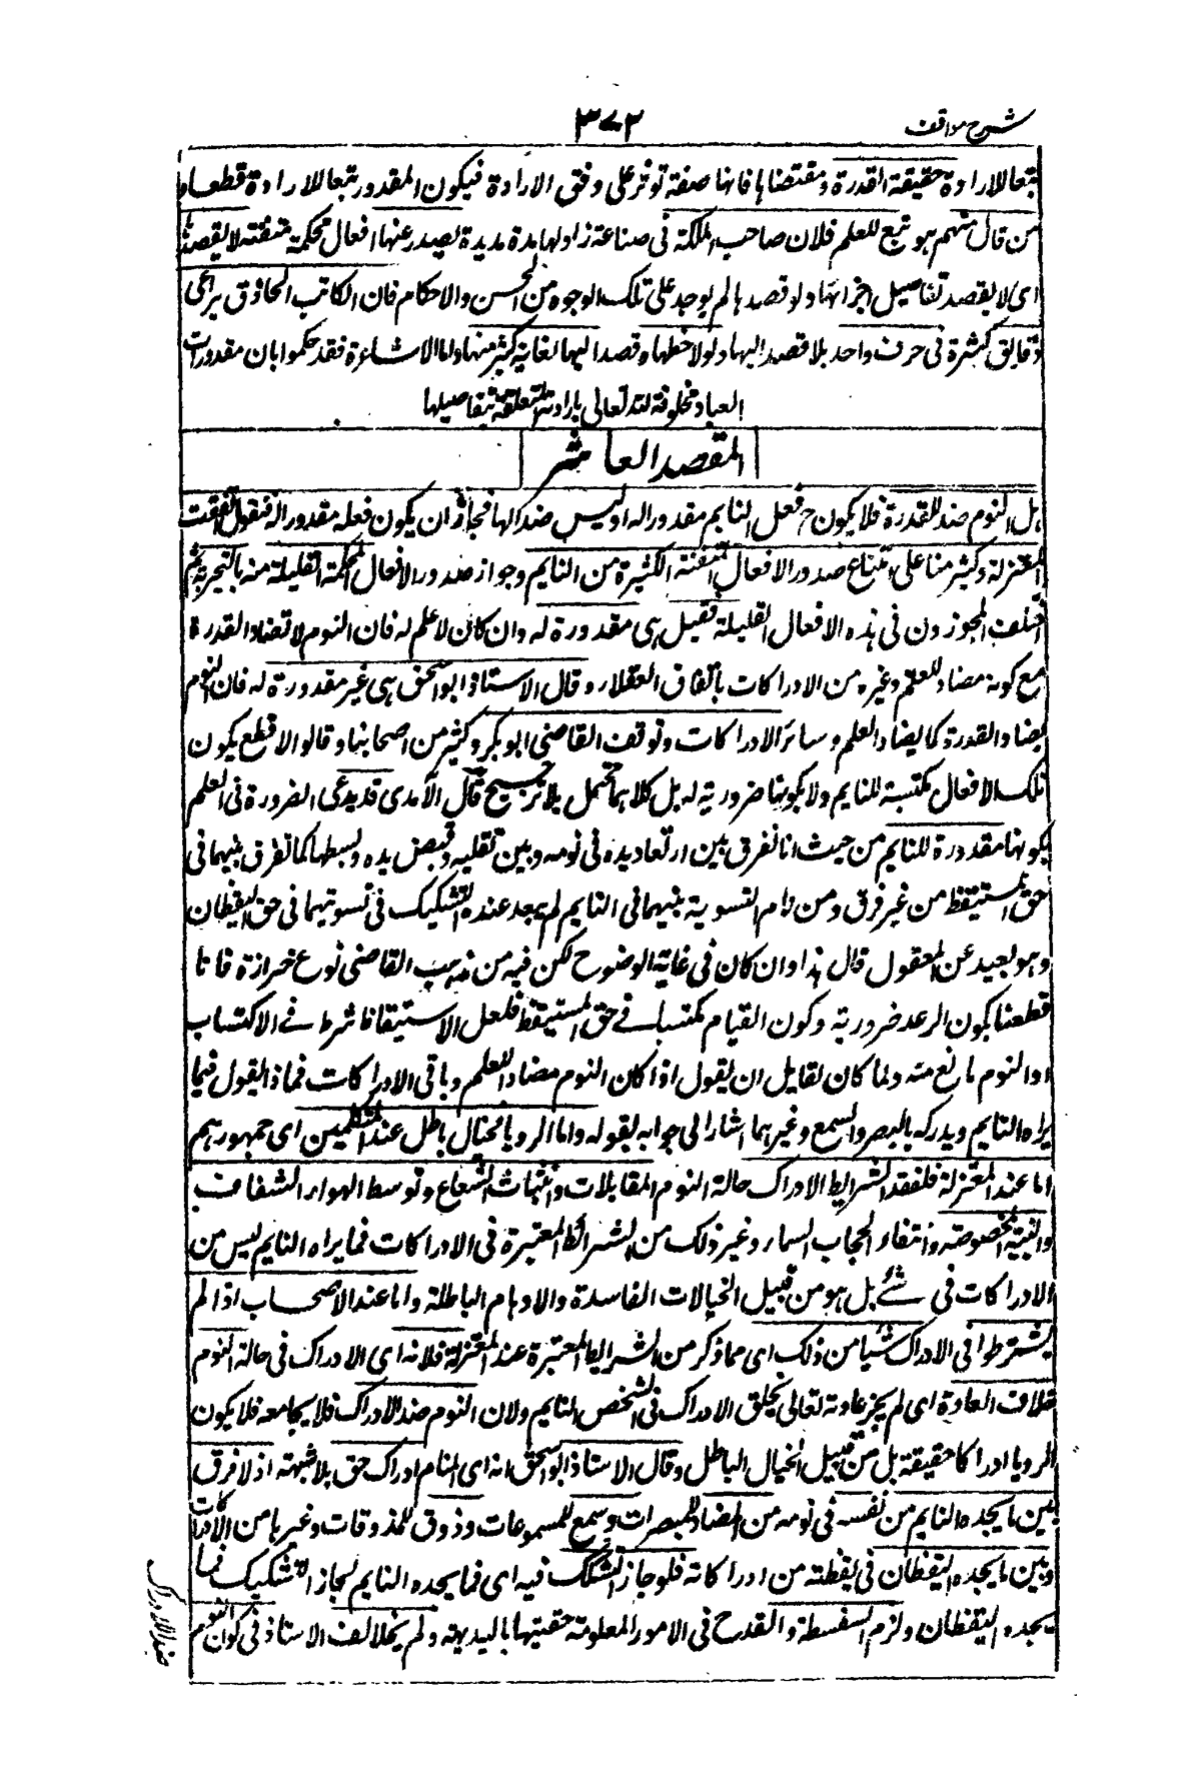 شرح مواقف
٣٧٢
تبعا للارادة حقيقة القدرة ومقتضاها فانها صفة توثر على وفق الارادة فيكون المقدور تبعا للارادة قطعا و
من قال منهم هو تبع للعلم فلان صاحب الملكة فى صناعة زاولها مدة مديدة يصدر عنها افعال محكمة متقنة لا يقصدها
اى لا يقصد تفاصيل اجزائها ولو قصدها لم يوجد على تلك الوجوه من الحسن والاحكام فان الكاتب الحاذق يراعى
دقايق كثيرة فى حرف واحد بلا قصد اليها ولو لاحظها وقصد اليها لغاية كثير منها واما الاشاعرة فقد حكموا بان مقدورات
العباد مخلوقة لله تعالى بارادته المتعلقة بتفاصيلها
المقصد العاشر
هل النوم ضد للقدرة فلا يكون ح فعل النايم مقدورا له او ليس ضدا لها فجاز ان يكون فعله مقدورا له فنقول اتفقت
المعتزلة وكثير منا على امتناع صدور الافعال المتقنة الكثيرة من النايم وجواز صدور الافعال المحكمة القليلة منه بالتجربة ثم
اختلف المجوزون فى هذه الافعال القليلة فقيل هى مقدورة له وان كان لا علم له فان النوم لا تضاد القدرة
مع كونه مضادا للعلم وغيره من الادراكات باتفاق العقلاء وقال الاستاذ ابو اسحق هى غير مقدورة له فان النوم
يضاد القدرة كما يضاد العلم وسائر الادراكات وتوقف القاضى ابو بكر وكثير من اصحابنا وقالوا لا قطع بكون
تلك الافعال مكتسبة للنايم ولا بكونها ضرورية له بل كلاهما محتمل بلا ترجيح قال الآمدى قد يدعى الضرورة فى العلم
بكونها مقدورة للنايم من حيث انا نفرق بين ارتعاد يده فى نومه وبين تقلبه وقبض يده وبسطها كما نفرق بينهما فى
حق المستيقظ من غير فرق ومن رام التسوية بينهما فى النايم لم يبعد عنده التشكيك فى تسويتهما فى حق اليقظان
وهو بعيد عن المعقول قال هذا وان كان فى غاية الوضوح لكن فيه من مذهب القاضى نوع حزازة فانا
قطعنا بكون الرعد ضرورية وكون القيام مكتسبا فى حق المستيقظ فلعل الاستيقاظ شرط فى الاكتساب
او النوم مانع منه ولما كان لقايل ان يقول اذا كان النوم مضادا للعلم وباقى الادراكات فماذا القول فيما
يراه النايم ويدركه بالبصر والسمع وغيرهما اشار الى جوابه بقوله واما الرويا فخيال باطل عند المتكلمين اى جمهورهم
اما عند المعتزلة فلفقد شرايط الادراك حالة النوم من المقابلات وانبثاث الشعاع وتوسط الهواء الشفاف
والبنية المخصوصة وانتفاء الحجاب السماء وغير ذلك من الشرائط المعتبرة فى الادراكات فما يراه النايم ليس من
الادراكات فى شئ بل هو من قبيل الخيالات الفاسدة والاوهام الباطلة واما عند الاصحاب اذا لم
يشترطوا فى الادراك شيا من ذلك اى مما ذكر من الشرايط المعتبرة عند المعتزلة فلانه اى الادراك فى حالة النوم
خلاف العادة اى لم يجز عادته تعالى بخلق الادراك فى الشخص النايم ولان النوم ضد الادراك فلا يجامعه فلا يكون
الرويا ادراكا حقيقة بل من قبيل الخيال الباطل وقال الاستاذ ابو اسحق انه اى المنام ادراك حق بلا شبهة اذ لا فرق
بين ما يجده النايم من نفسه فى نومه من ابصار للمبصرات وسمع للمسموعات وذوق للمذوقات وغيرها من الادراكات
وبين ما يجده اليقظان فى يقظته من ادراكاته فلو جاز التشكك فيه اى فيما يجده النايم لجاز التشكيك فيما
يجده اليقظان ولزم السفسطة والقدح فى الامور المعلومة حقيتها بالبديهة ولم يخالف الاستاذ فى كون النوم
ضد الادراك